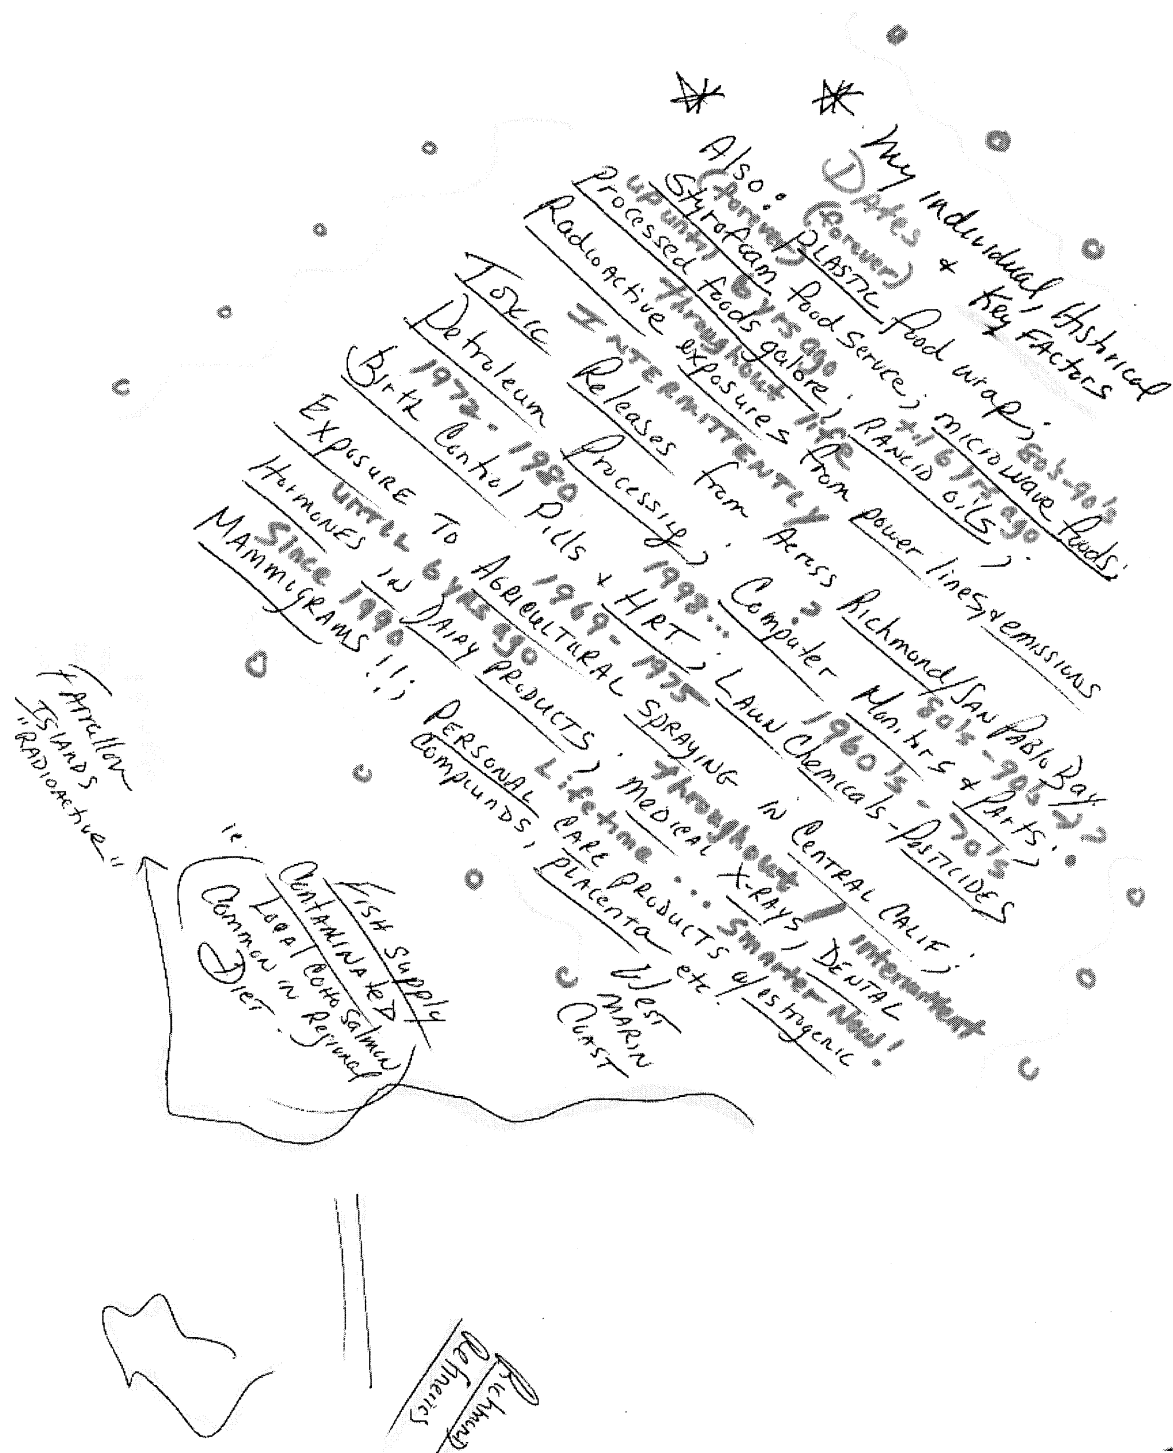 * My individual, Historical
Dates & Key Factors
(forever)
* Also: PLASTIC food wrap;
(forever) 80's-90's
Styrofoam food service; microwave foods;
up until 6 yrs ago til 6 yrs ago
Processed foods galore; RANCID oils;
throughout life
Radioactive exposures from power lines, & emissions
INTERMITTENTLY
Toxic Releases from Across Richmond/SAN PABLO Bay;
? 80's-90's ??
Petroleum Processing; Computer Monitors & Parts;
1972-1980 1998... 1960's-70's
Birth Control Pills & HRT; LAWN Chemicals-PESTICIDES
1969-1975
EXPOSURE TO AGRICULTURAL SPRAYING in CENTRAL CALIF;
UNTIL 6 yrs ago Throughout / intermittent
HORMONES IN DAIRY PRODUCTS; MEDICAL X-RAYS, DENTAL
Since 1990 Lifetime... Smarter Now!
MAMMIGRAMS!!; PERSONAL CARE PRODUCTS w/estrogenic
COMPOUNDS, placenta etc.
WEST
MARIN
COAST
FISH Supply
ie. CONTAMINATED
Local COHO Salmon
Common in Regional
DIET.
FArrallon
ISLANDS
"RADIOActive"
Richmond
Refineries